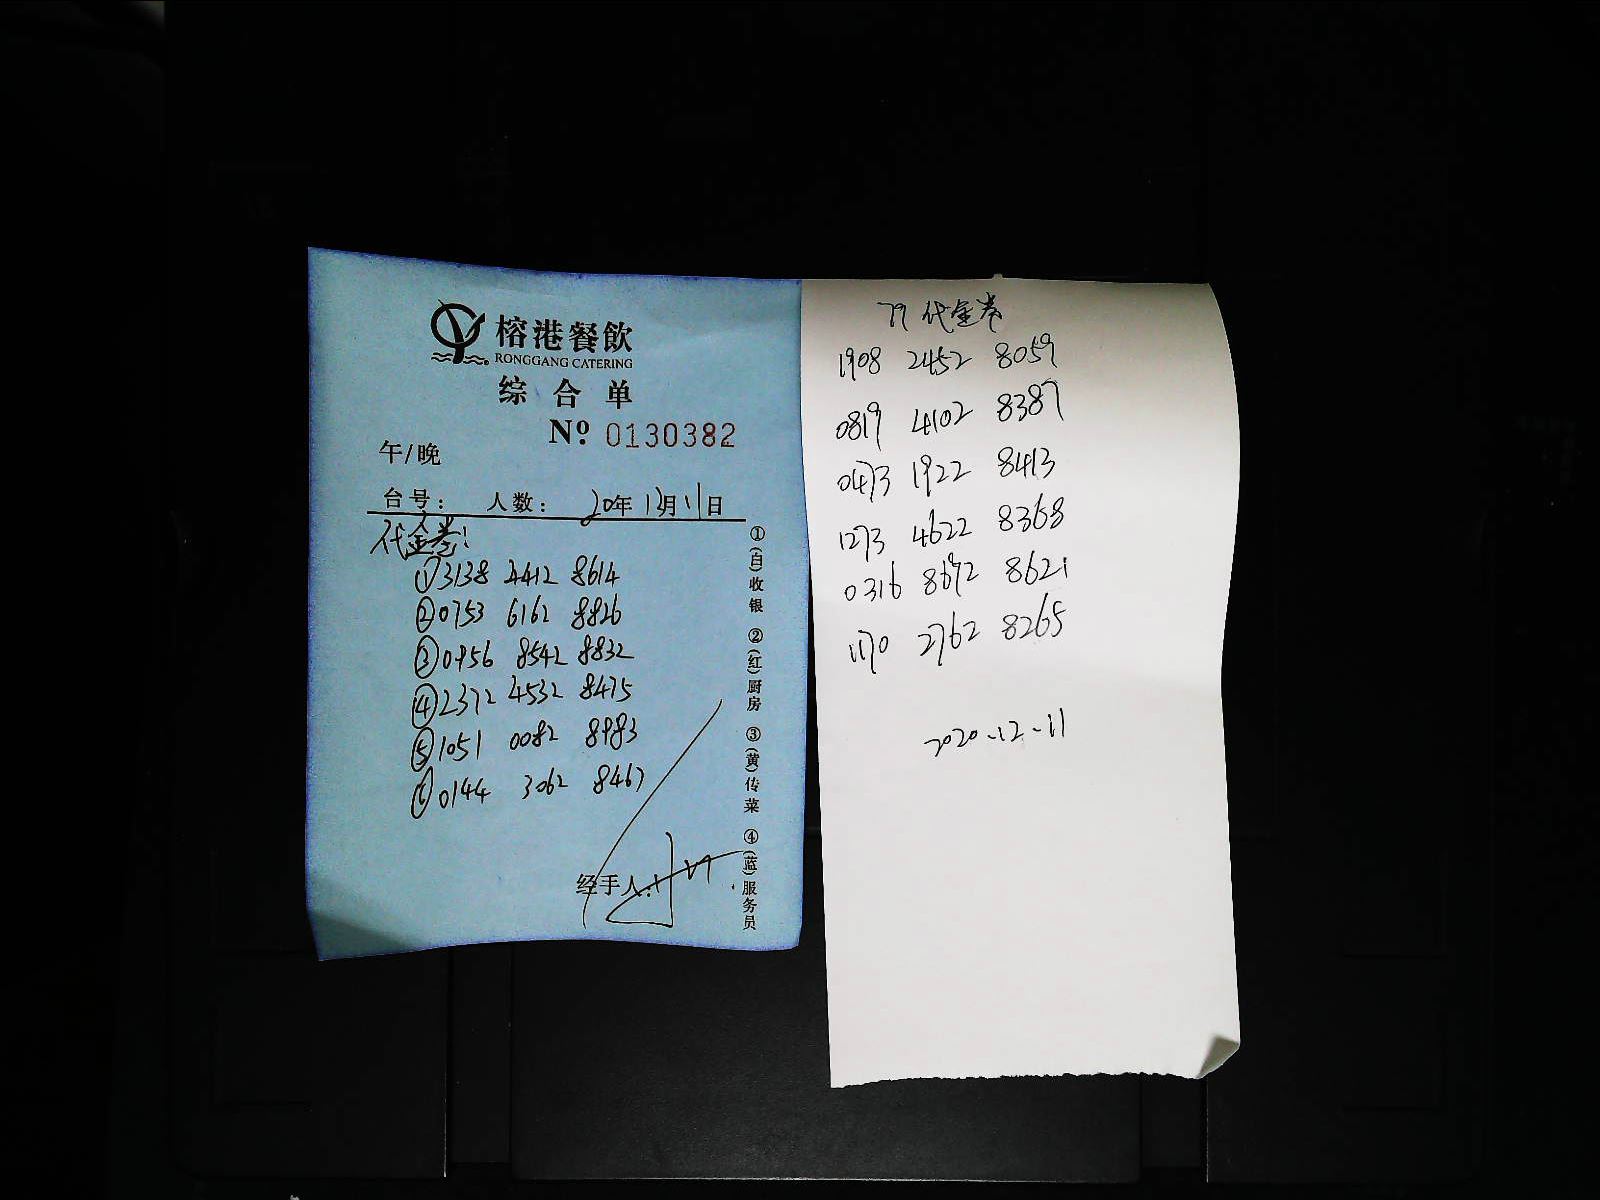 榕港餐飲
RONGGANG CATERING
综合单
Nº 0130382
午/晚
台号: 人数: 20年12月11日
代金券!
①3138 2412 8614
②0753 6162 8826
③0956 8542 8832
④2372 4532 8475
⑤1051 0082 8983
⑥0144 3062 8467
经手人:
①(白)收银 ②(红)厨房 ③(黄)传菜 ④(蓝)服务员
79代金券
1908 2452 8059
0819 4102 8387
0473 1922 8413
1273 4622 8368
0316 8692 8621
1170 2762 8265
2020-12-11